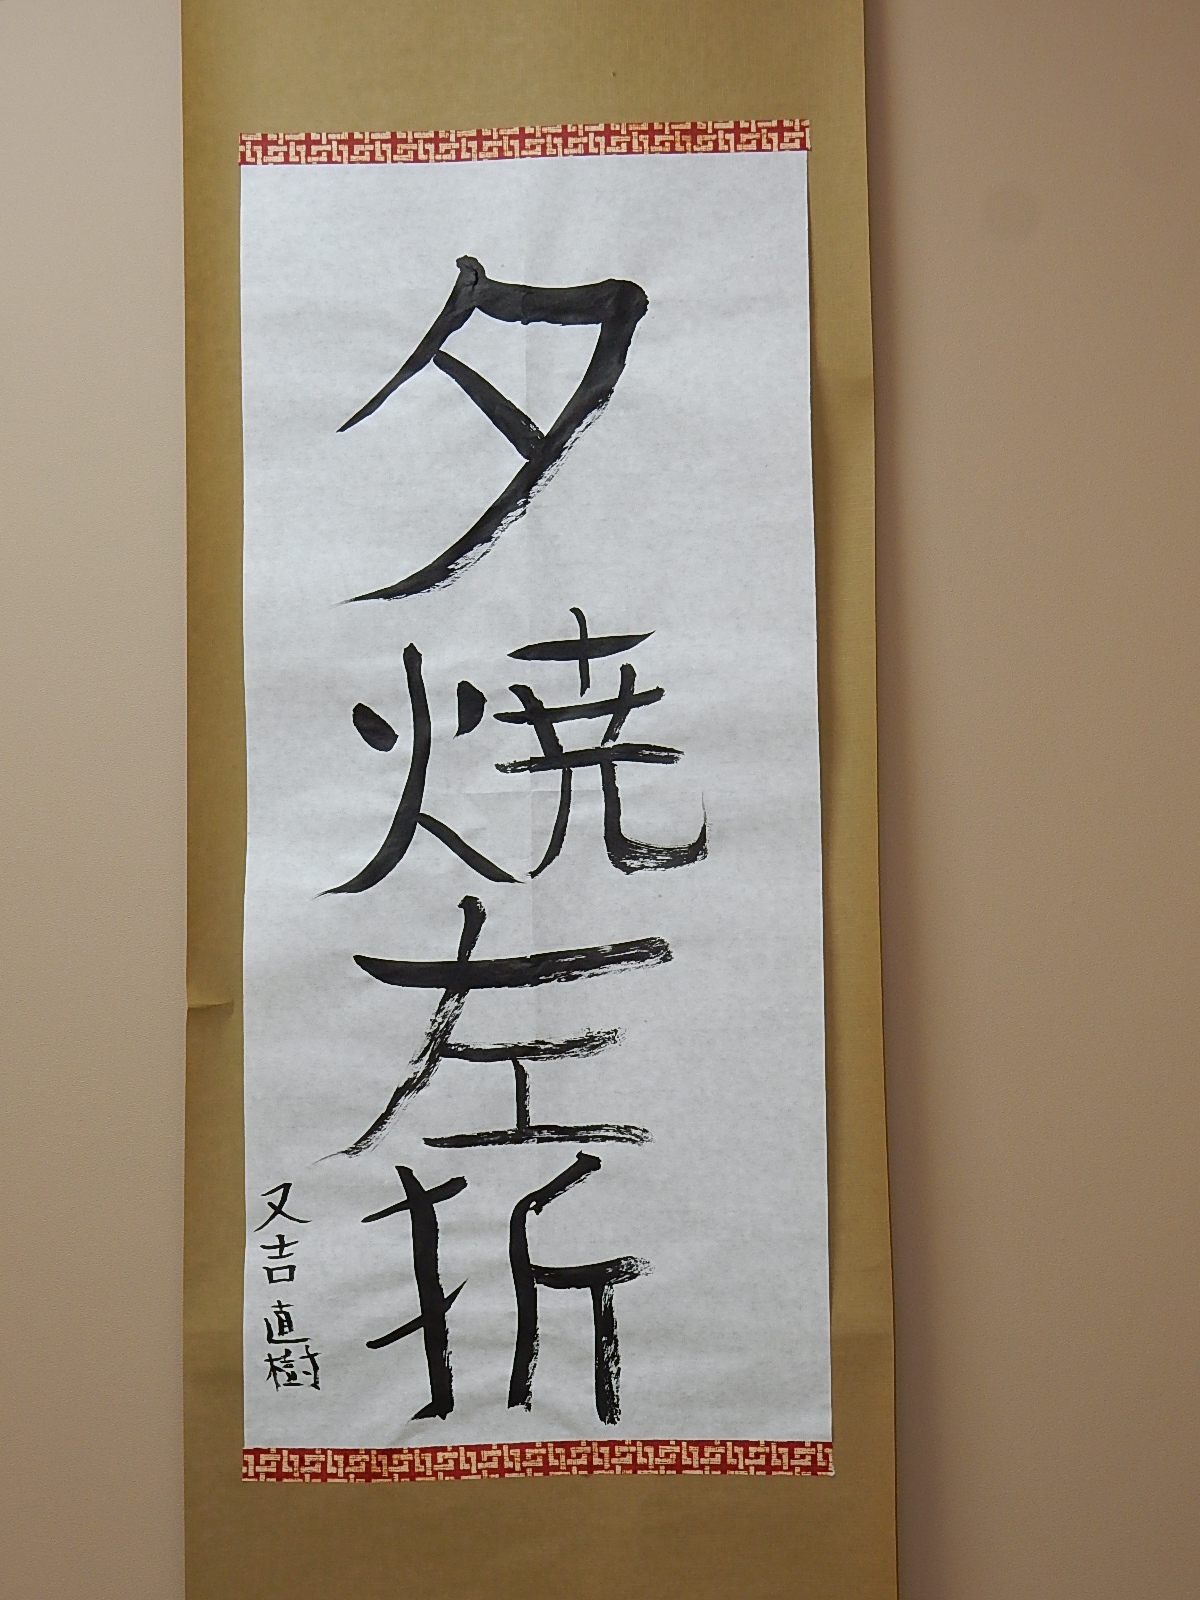 夕焼左折
又吉直樹